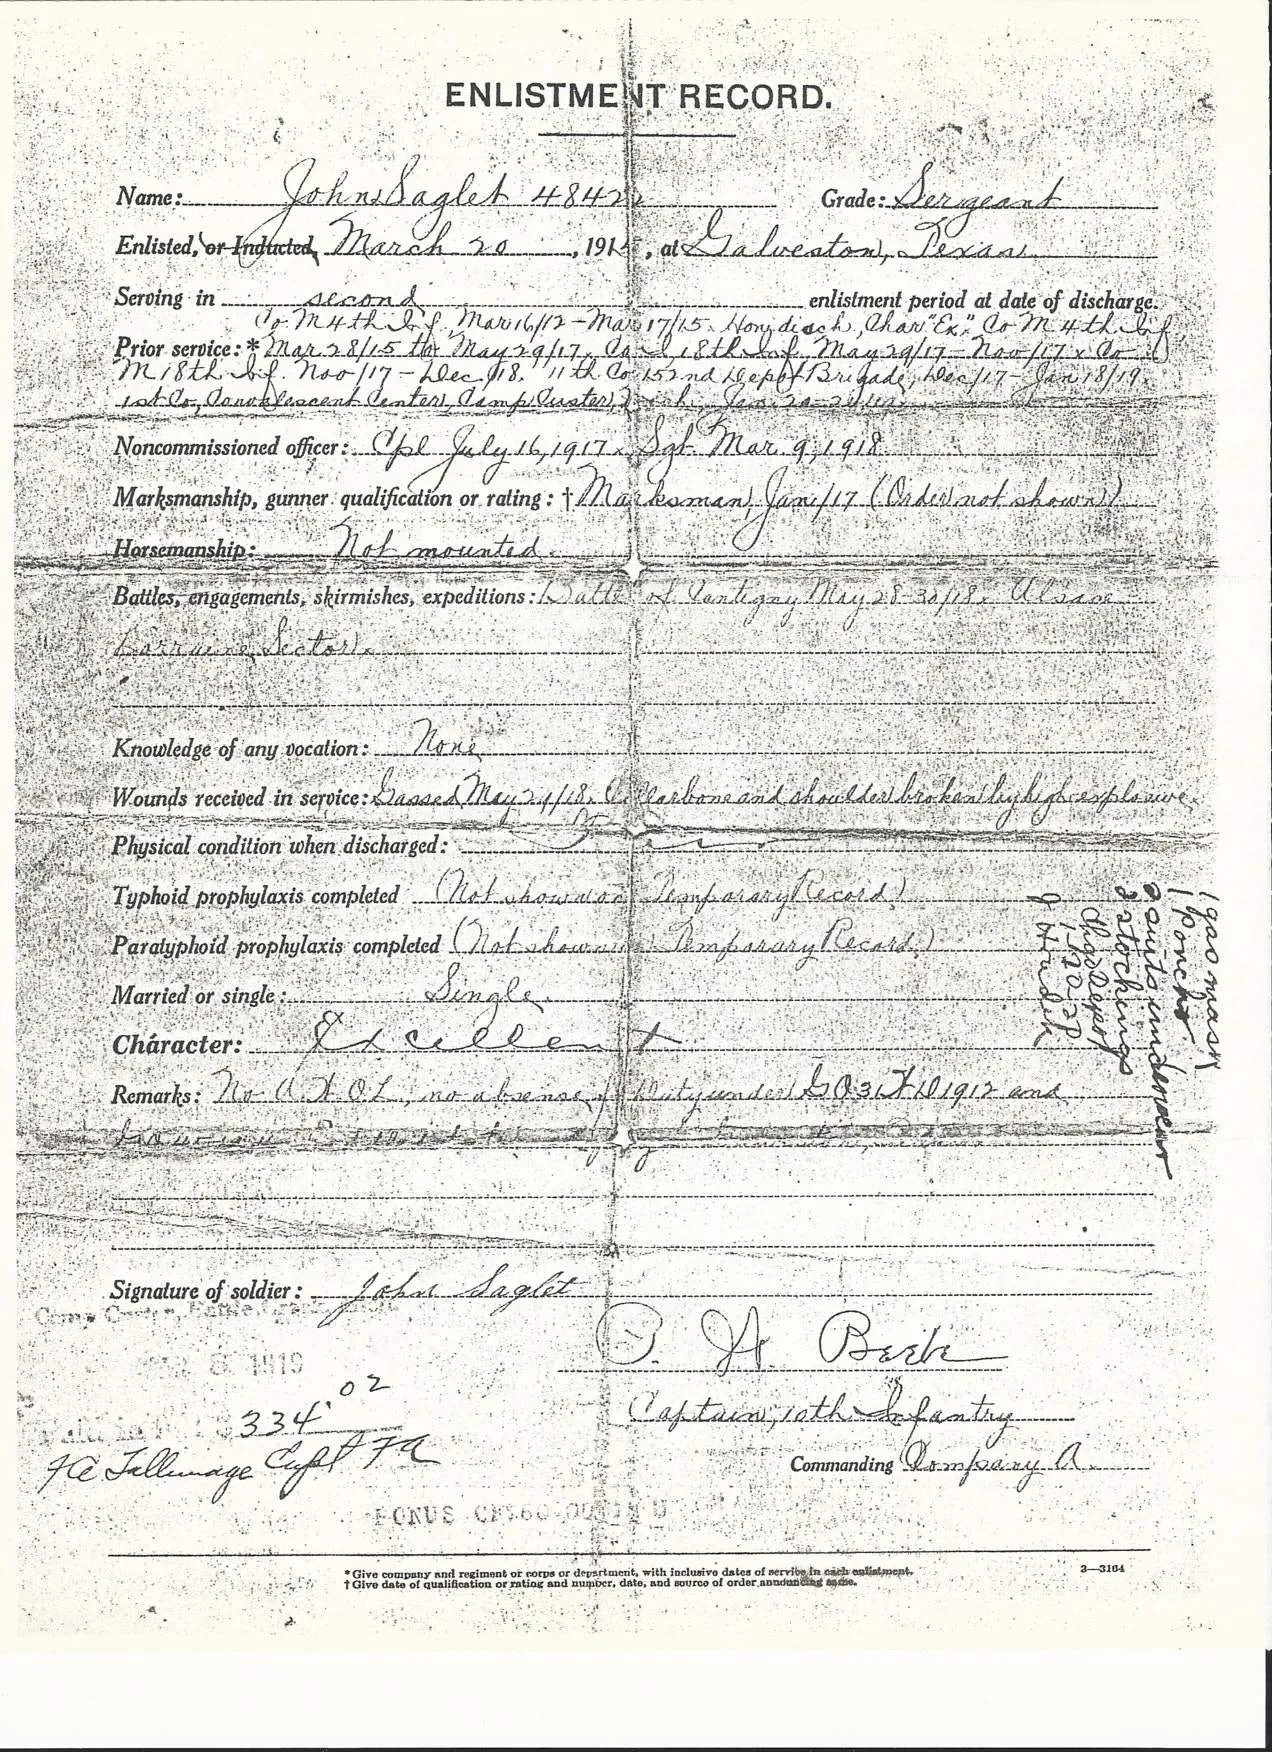 ENLISTMENT RECORD.
Name: John Saglet 4842 Grade: Sergeant
Enlisted, or Inducted, March 20, 1915, at Galveston, Texas.
Serving in second enlistment period at date of discharge.
Co M 4th Inf. Mar 16/12 - Mar 17/15. Hon disch, Char "Ex." Co M 4th Inf
Prior service: * Mar 28/15 to May 29/17. Co 18th Inf. May 29/17 - Nov /17. Co
M 18th Inf. Nov /17 - Dec /18. 11th Co 152nd Depot Brigade, Dec /17 - Jan 18/19.
1st Co, Convalescent Center, Camp Custer, Mich, Jan 20
Noncommissioned officer: Cpl July 16, 1917. Sgt Mar 9, 1918
Marksmanship, gunner qualification or rating: † Marksman, Jan /17 (Order not shown)
Horsemanship: Not mounted.
Battles, engagements, skirmishes, expeditions: Battle of Cantigny May 28-30/18. Alsace
Lorraine Sector.
Knowledge of any vocation: None
Wounds received in service: Gassed May /18. Collarbone and shoulder broken by high explosive.
Physical condition when discharged:
Typhoid prophylaxis completed (Not shown on Temporary Record)
Paratyphoid prophylaxis completed (Not shown on Temporary Record.)
Married or single: Single.
Character: Excellent
Remarks: No A.W.O.L., no absense f Duty under G O 31 W D 1912 and
1 gas mask
1 poncho
2 suits underwear
2 stockings
Signature of soldier: John Saglet
Camp Custer, Battle Creek
1919
P. H. Beebe
Captain, 10th Infantry
Commanding Company A.
334.02
FA Tallmage Capt FA
BONUS
* Give company and regiment or corps or department, with inclusive dates of service in each enlistment.
† Give date of qualification or rating and number, date, and source of order announcing same.
3—3164